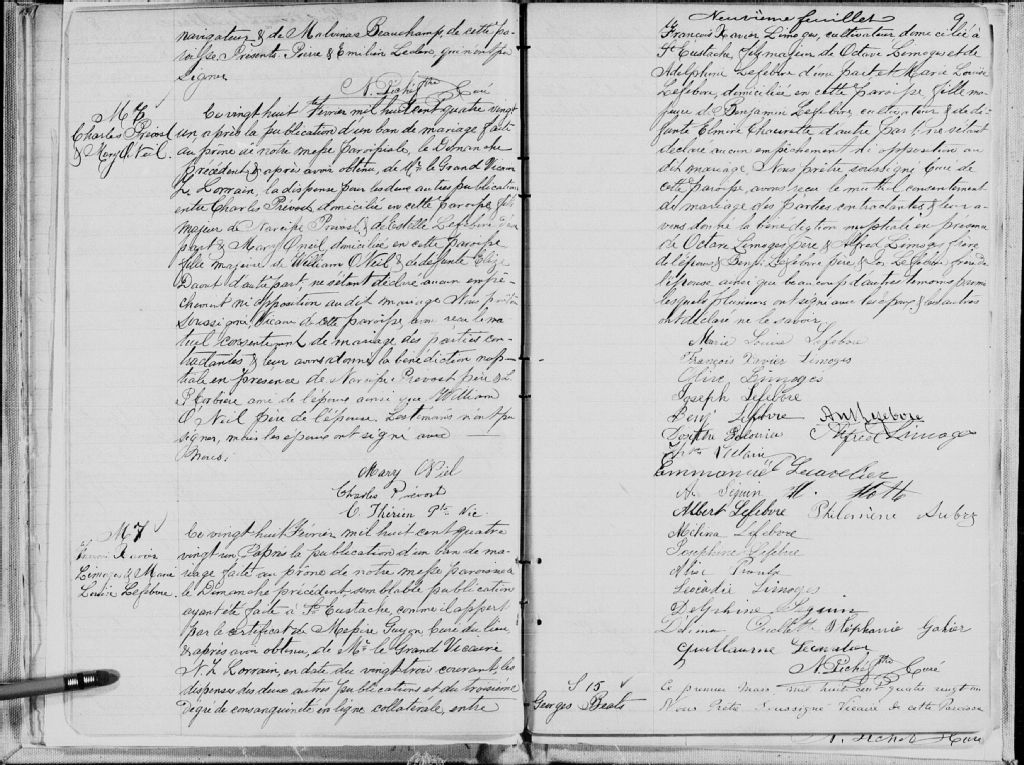 navigateur & de Malvinas Beauchamp, de cette pa-
roisse. Présents Pierre & Emilien Leclerc qui n'ont su
signer
N. Piché Ptre Curé
M 6
Charles Prévost
& Mary O'Neil.
Ce vingt huit Février mil huit cent quatre vingt
un après la publication d'un ban de mariage faite
au prône de notre messe paroissiale, le Dimanche
précédent & après avoir obtenu, de Mr le Grand Vicaire
Lorrain, la dispense pour les deux autres publications
entre Charles Prévost domicilié en cette paroisse fils
majeur de Narcisse Prevost & de Estelle Lefebvre d'une
part & Mary O'neil domiciliée en cette paroisse
fille majeure de William O'Neil & de défunte
Daoust d'autre part, ne s'étant déclaré aucun empê-
chement ni opposition au dit mariage Nous prêtre
soussigné, Vicaire de cette paroisse, avons reçu le mu-
tuel consentement de mariage des parties con-
tractantes & leur avons donné la bénédiction nup-
tiale en présence de Narcisse Prevost père & L.
P Corbière ami de l'époux ainsi que William
O'Neil père de l'épouse. Les témoins n'ont pu
signer, mais les époux ont signé avec
Nous.
Mary ONeil
Charles Prévost
C. Thérien Ptre Vic.
M 7
François Xavier
Limoges & Marie
Louise Lefebvre.
Ce vingt huit Février mil huit cent quatre
vingt un, après la publication d'un ban de ma-
riage faite au prône de notre messe paroissiale
le Dimanche précédent semblable publication
ayant été faite à St Eustache, comme il appert
par le certificat de Messire Guyon, Curé du lieu,
& après avoir obtenu, de Mr le Grand Vicaire
N. Z Lorrain, en date du vingt trois courant, les
dispenses des deux autres publications et du troisième
degré de consanguinité en ligne collatérale, entre
Neuvième feuillet 9
François Xavier Limoges, cultivateur domicilié à
St Eustache, fils majeur de Octave Limoges et de
Adelphine Lefebvre d'une part et Marie Louise
Lefebvre, domiciliée en cette paroisse, fille ma-
jeure de Benjamin Lefebvre cultivateur & de dé-
funte Elmire d'autre part, ne s'étant
déclaré aucun empêchement ni opposition au
dit mariage. Nous prêtre soussigné Curé de
cette paroisse, avons reçu le mutuel consentement
de mariage des parties contractantes & leur a-
vons donné la bénédiction nuptiale en présence
de Octave Limoges père & Alfred Limoges frère
de l'époux & Benj. Lefebvre père & Lefebvre frère de
l'épouse ainsi que beaucoup d'autres témoins parmi
lesquels plusieurs ont signé avec les époux & les autres
ont déclaré ne le savoir.
Marie Louise Lefebvre
François Xavier Limoges
Olive Limoges
Joseph Lefebvre
Benj Lefebvre
Alfred Limoges
A. Séguin
Albert Lefebvre Philomène Aubry
Mélina Lefebvre
Joséphine Lefebvre
Alice
Léocadie Limoges
Delphine Séguin
Ouellette Stéphanie
Guillaume
N. Piché Ptre Curé
S 15
Georges Beals
Ce premier Mars mil huit cent quatre vingt un
Nous Prêtre Soussigné Vicaire de cette Paroisse
N. Piché Ptre Curé